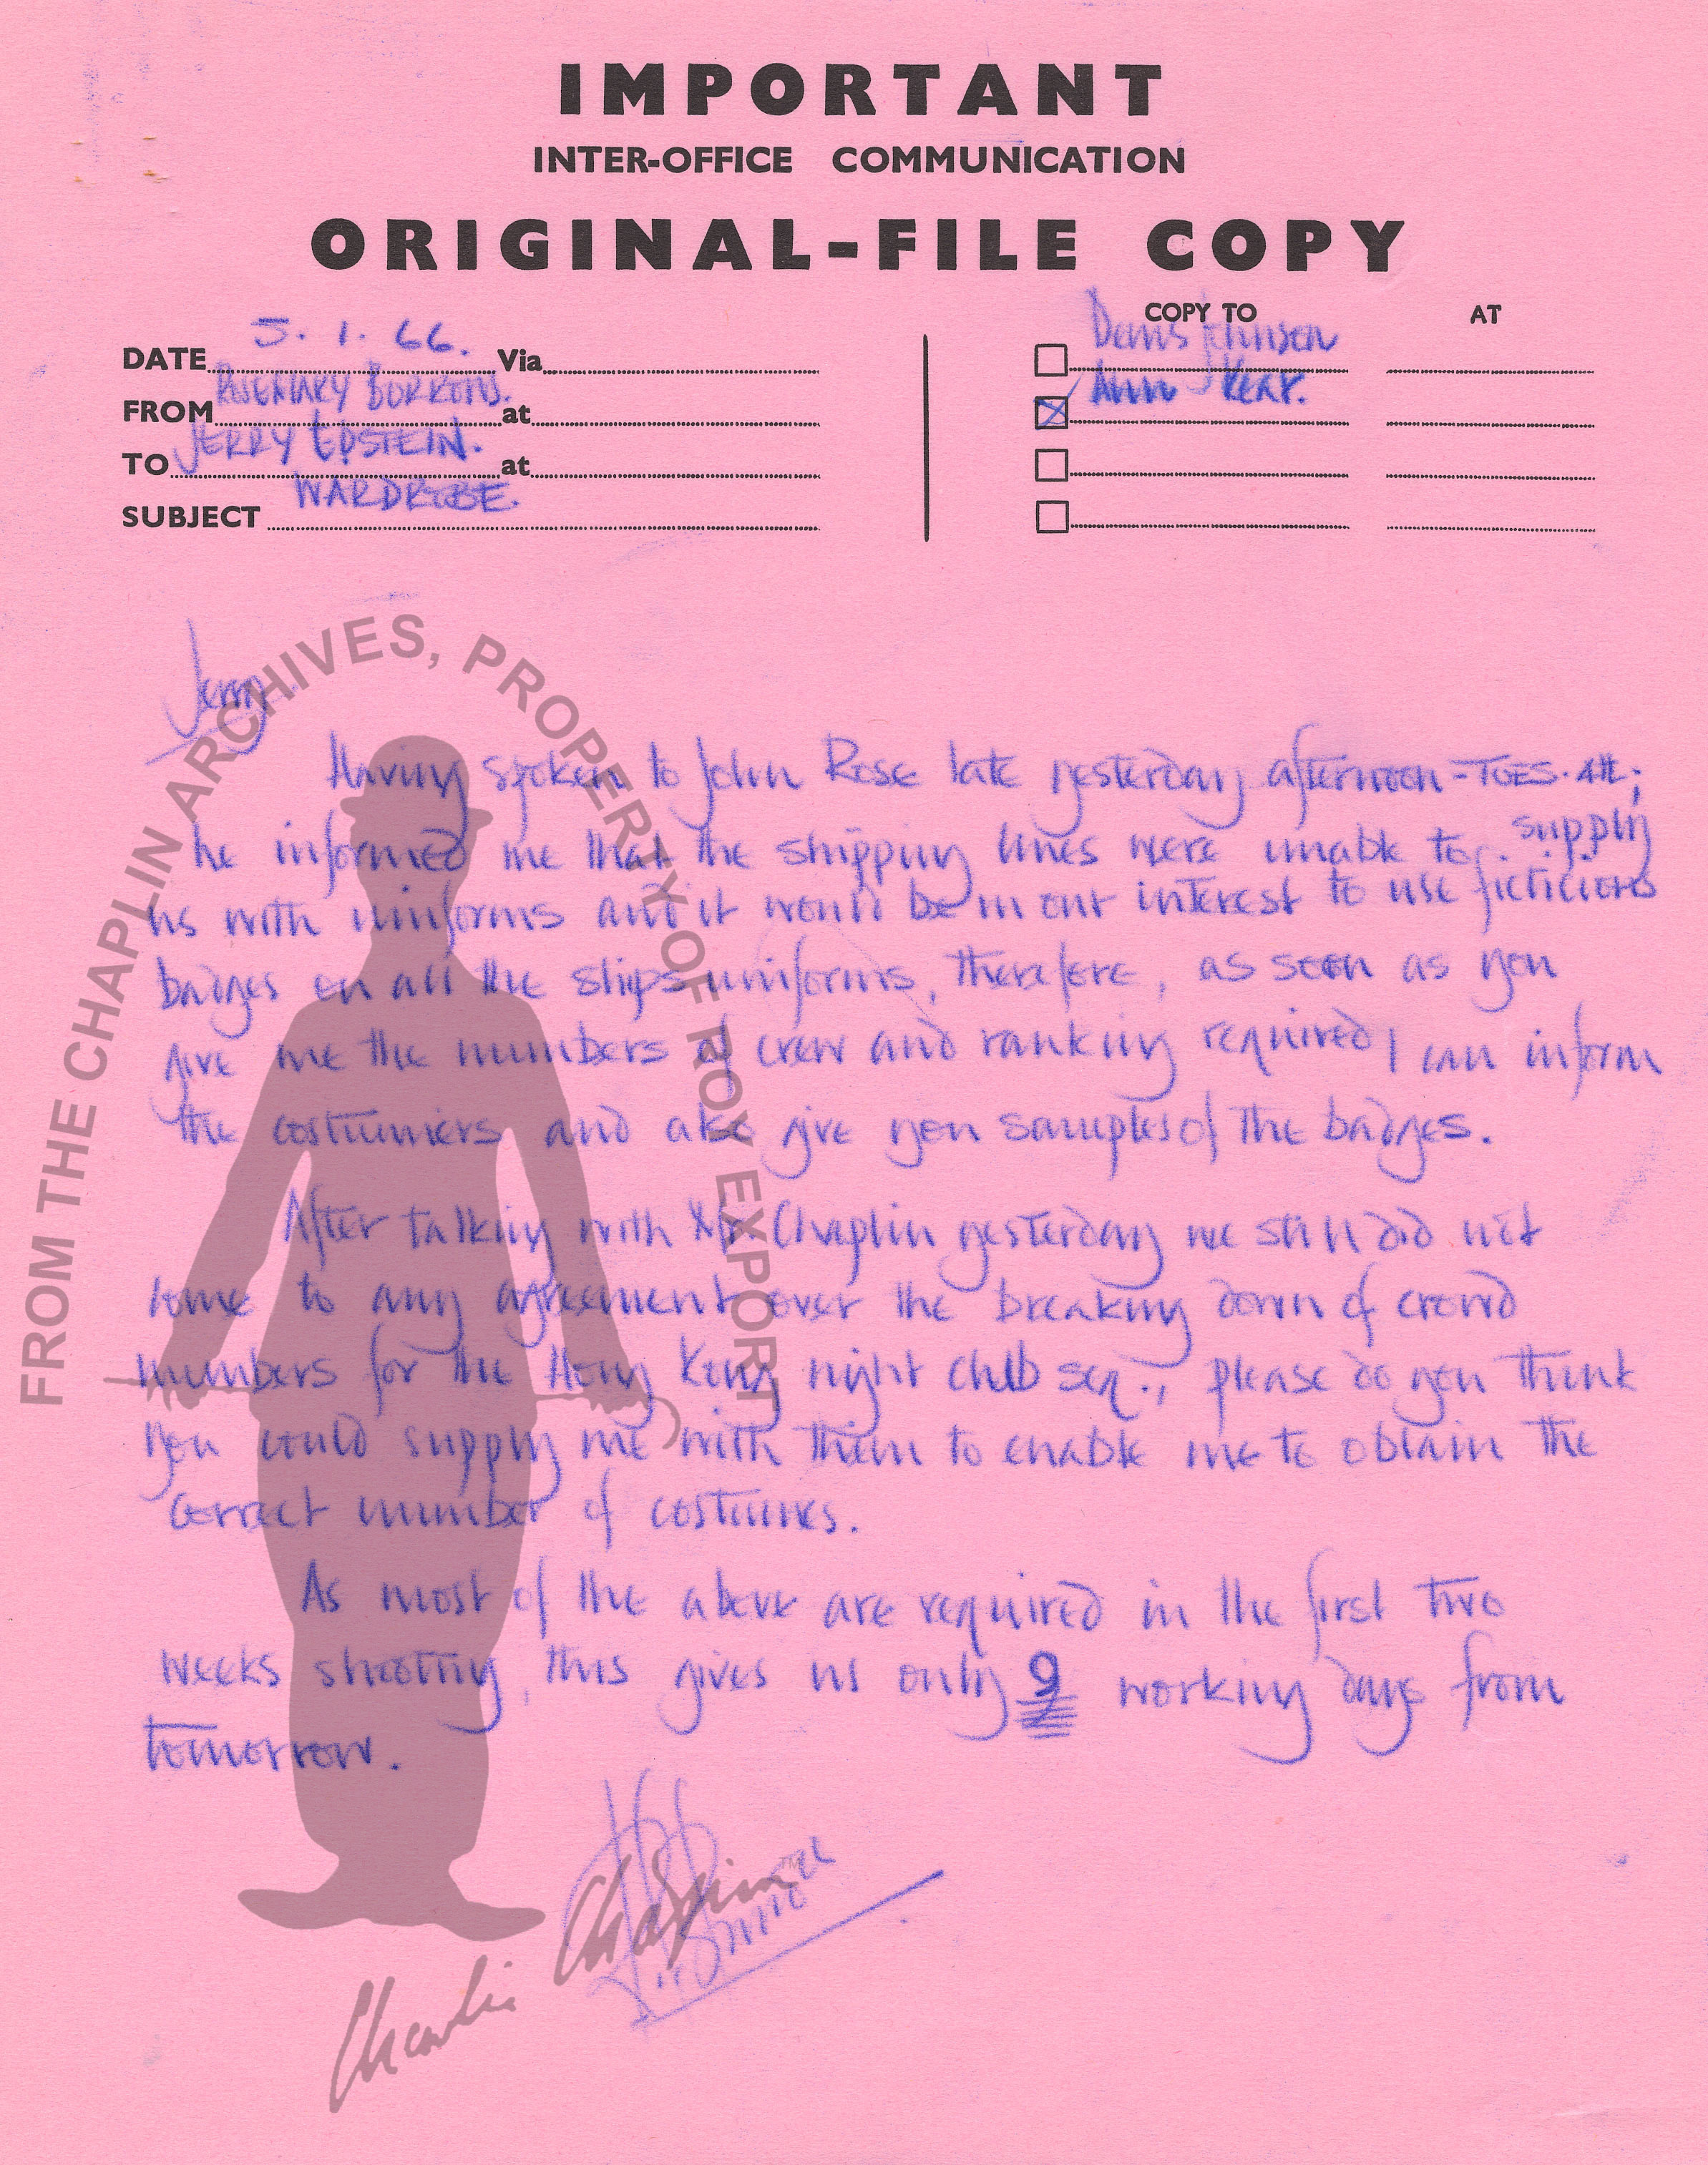 IMPORTANT
INTER-OFFICE COMMUNICATION
ORIGINAL-FILE COPY
COPY TO AT
DATE 5. 1. 66. Via
Denis Johnson
FROM ROSEMARY BURROWS. at
Ann Kear.
TO JERRY EPSTEIN. at
SUBJECT WARDROBE.
FROM THE CHAPLIN ARCHIVES, PROPERTY OF ROY EXPORT
Jerry
Having spoken to John Rose late yesterday afternoon - TUES. 4th;
he informed me that the shipping lines were unable to supply
us with uniforms and it would be in our interest to use ficticious
badges on all the ships uniforms, therefore, as soon as you
give me the numbers of crew and ranking required I can inform
the costumiers and also give you samples of the badges.
After talking with Mr Chaplin yesterday we still did not
come to any agreement over the breaking down of crowd
numbers for the Hong Kong night club seq., please do you think
you could supply me with them to enable me to obtain the
correct number of costumes.
As most of the above are required in the first two
weeks shooting, this gives us only 9 working days from
tomorrow.
Charlie Chaplin TM